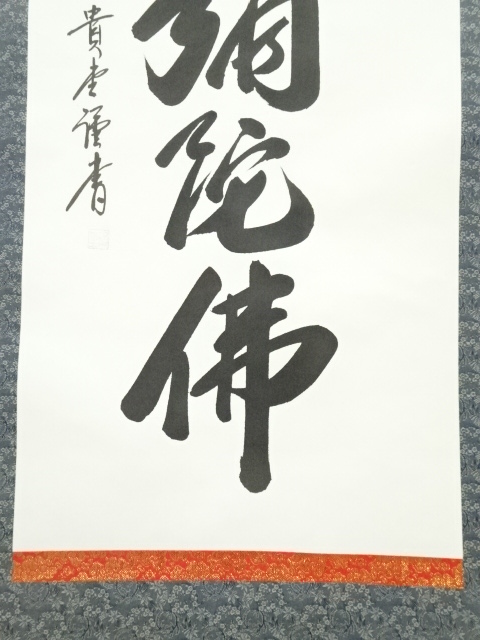 彌陀佛
貴堂謹書